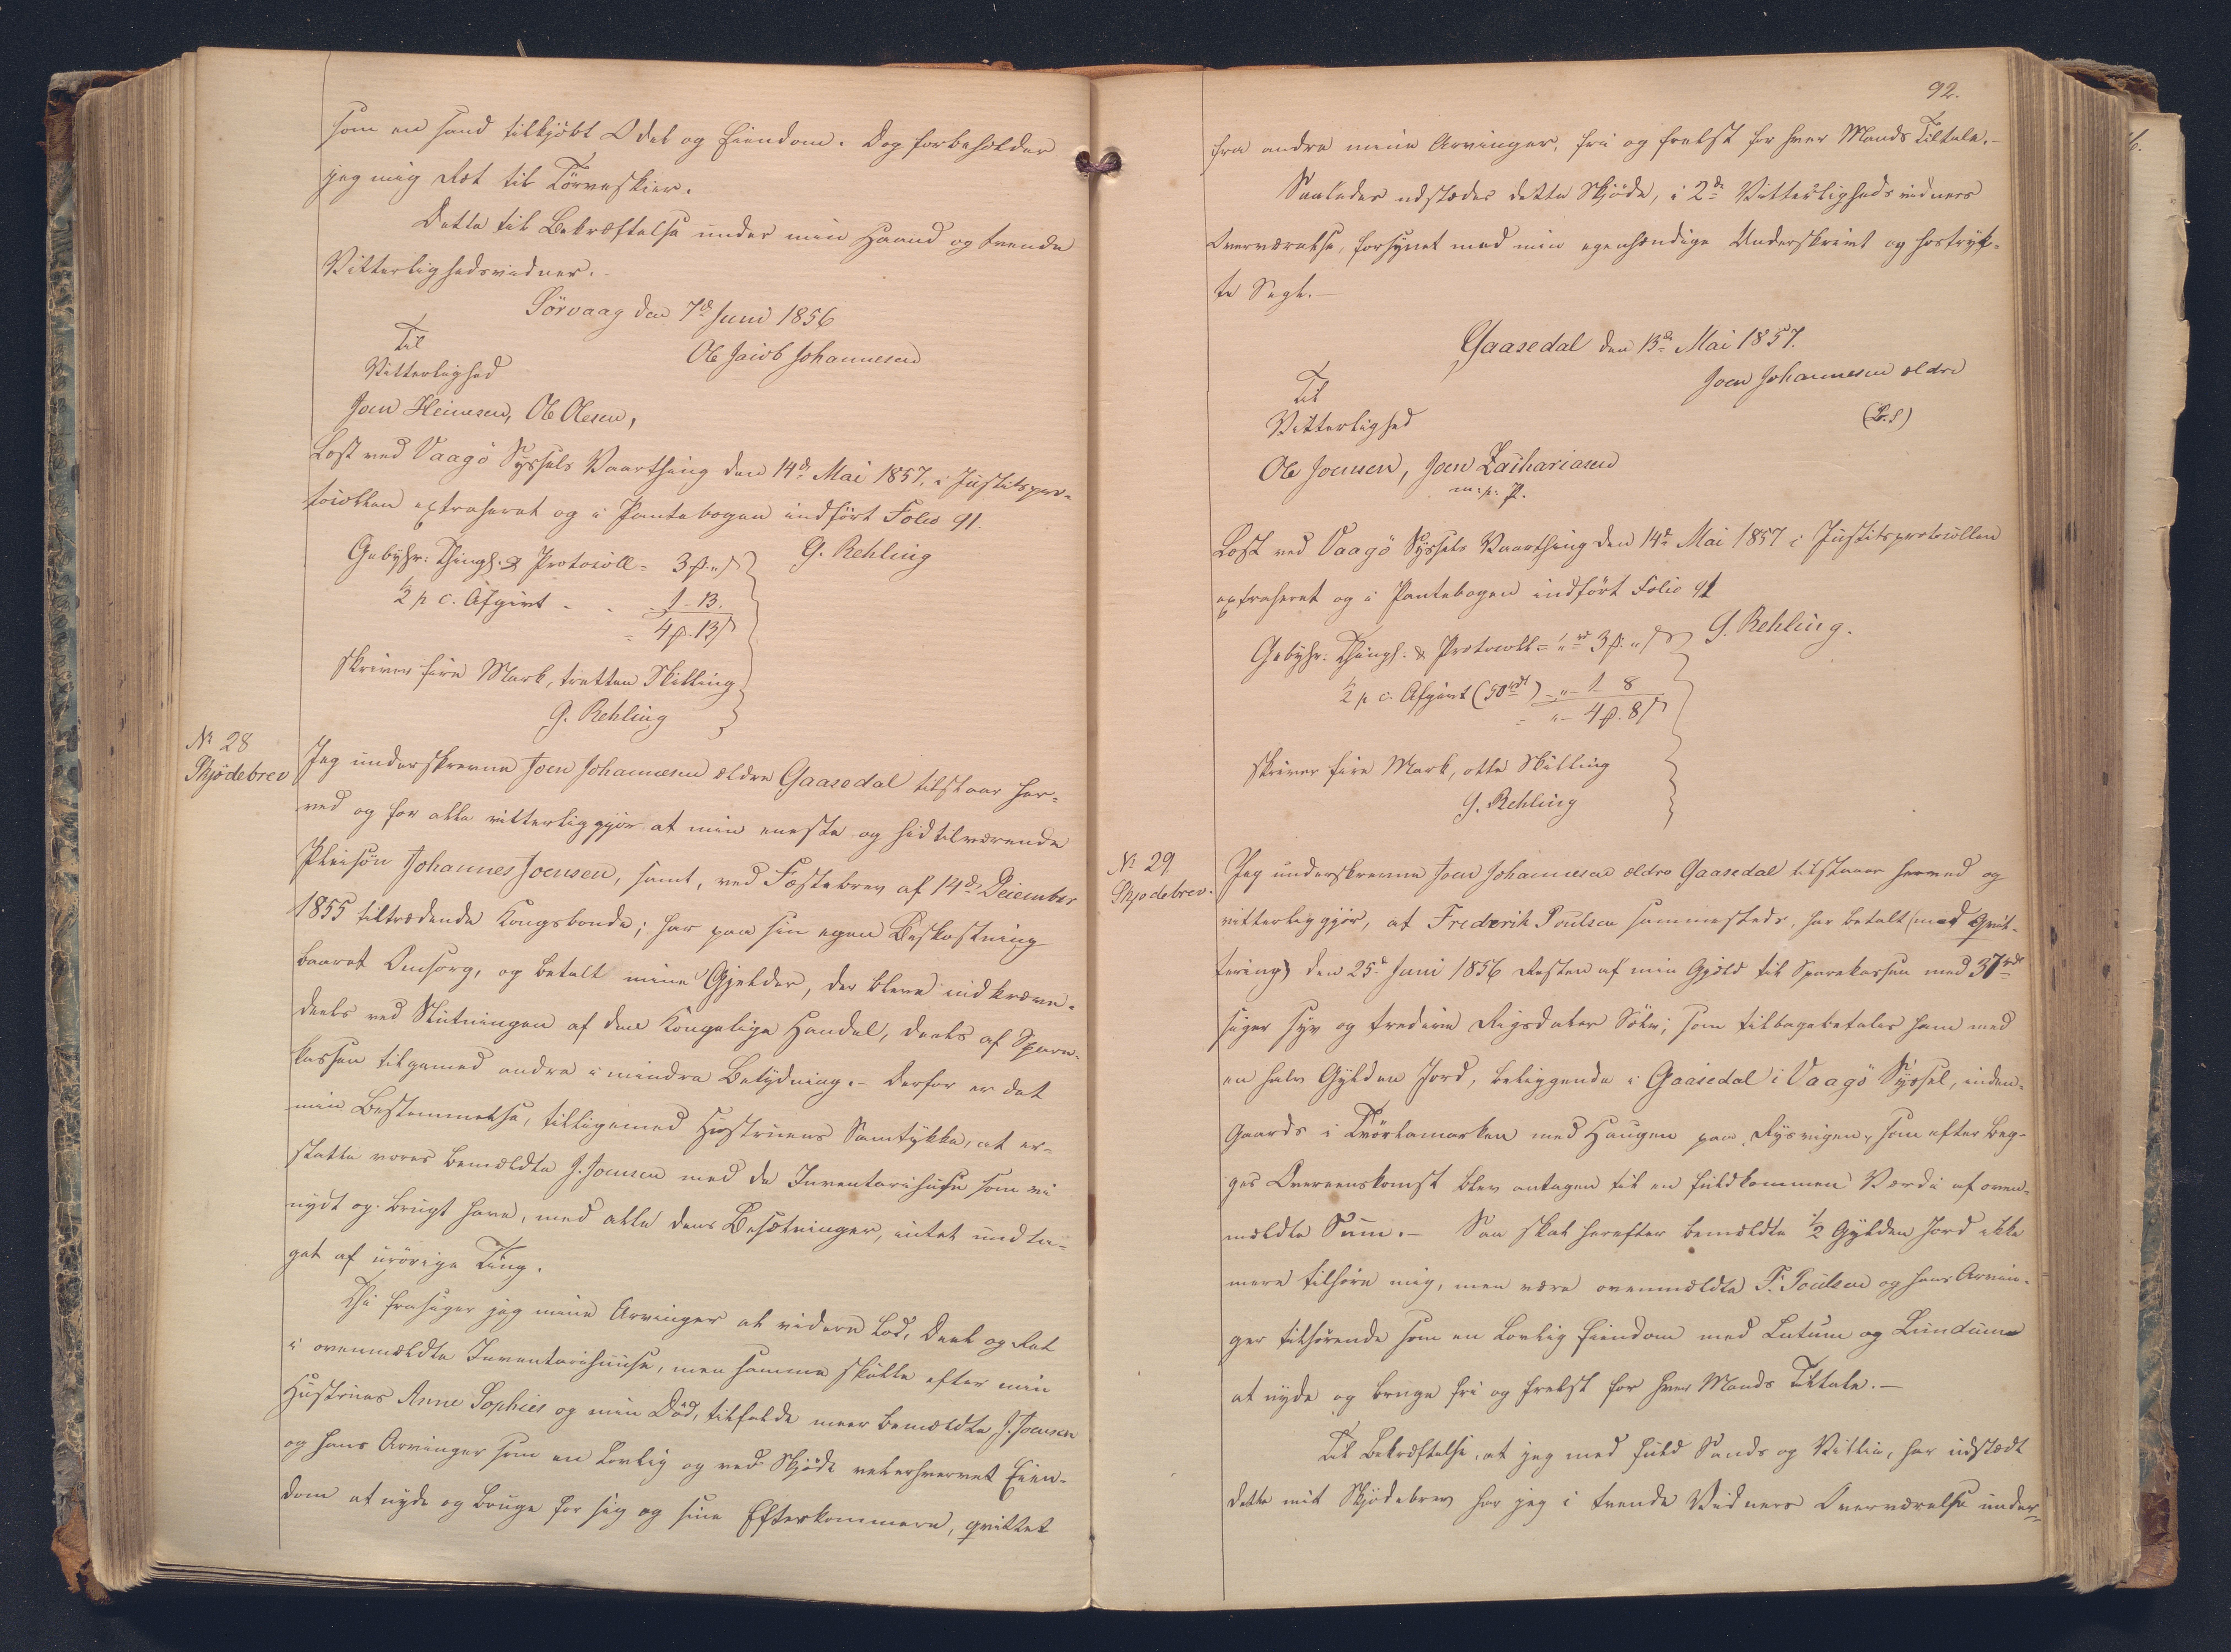 som en sand tilkjöbt Odel og Eiendom. Dog forbeholder
jeg mig Ret til Törveskier.
Dette til Bekræftelse under min Haand og tvende
Vitterlighedsvidner.
Sörvaag den 7d Juni 1856
Til
Vitterlighed
Ole Jacob Johannesen
Joen Heinesen, Ole Olesen,
Læst ved Vaagö Syssels Vaarthing den 14d Mai 1857, i Justitspro-
tocollen extraheret og i Pantebogen indfört Folio 91.
G. Rehling
Gebyhr: Thingl. & Protocoll = 3 ß. " s
1/2 p c. Afgivt - - 1 - 13.
= 4 ß. 13 s
skriver fire Mark, tretten Skilling
G. Rehling
No 28
Skjödebrev
Jeg underskrevne Joen Johannesen ældre Gaasedal tilstaar her-
ved og for alle vitterliggjör at min eneste og hidtilværende
Pleisön Johannes Joensen, samt, ved Fæstebrev af 14d December
1855 tiltrædende Kongsbonde; har paa sin egen Beskostning
baaret Omsorg, og betalt mine Gjelder, der bleve indkræve-
deels ved Slutningen af den Kongelige Handel, deels af Spare-
kassen tilgemed andre i mindre Betydning. - Derfor er det
min Bestemmelse, tilligemed Hustruens Samtykke, at er-
statte vores bemældte J. Joensen med de Inventariihuse som vi
nydt og brugt have, med alle dens Besætninger, intet undta-
get af urörige Ting.
Thi frasiger jeg mine Arvinger at videre Lod, Deel og Ret
i ovenmældte Inventariihuuse, men samme skulle efter min
Hustrues Anne Sophies og min Död, tilfalde meer bemældte J. Joensen
og hans Arvinger som en Lovlig og ved Skjöde velerhvervet Eien-
dom at nyde og bruge for sig og sine Efterkommere, qvittet
92.
fra andre mine Arvinger, fri og frelst for hver Mands Tiltale. -
Saaledes udstædes dette Skjöde, i 2de Vitterlighedsvidners
Overværelse, forsynet med min egenhændige Underskrivt og hostryk-
te Segl. -
Gaasedal den 13d Mai 1857.
Joen Johannesen ældre
(L.S)
Til
Vitterlighed
Ole Joensen, Joen Zachariasen
m. p. P.
Læst ved Vaagö Syssels Vaarthing den 14d Mai 1857 i Justitsprotocollen
extraheret og i Pantebogen indfört Folio 91
G. Rehling.
Gebyhr: Thingl: & Protocoll = " rd 3 ß. " s
1/2 p c. Afgivt (50 rdl) - " - 1 8
= " - 4 ß. 8 s
skriver fire Mark, otte Skilling
G. Rehling
No 29
Skjodebrev.
Jeg underskrevne Joen Johannesen ældre Gaasedal tilstaaer herved og
vitterliggjör, at Frederik Poulsen sammesteds, har betalt (med Qvit-
tering) den 25d Juni 1856 Resten af min Gjæld til Sparekassen med 37 rdl
siger syv og tredive Rigsdaler Sölv; som tilbagebetales ham med
en halv Gylden Jord, beliggende i Gaasedal i Vaagö Syssel, inden-
Gaards i Tvörlamarken med Haugen paa Rysvigen, som efter beg-
ges Overeenskomst blev antagen til en fuldkommen Værdi af oven-
mældte Sum. - Saa skal herefter bemældte 1/2 Gylden Jord ikke
mere tilhöre mig, men være ovenmældte F. Poulsen og hans Arvin-
ger tilhörende som en Lovlig Eiendom med Lutum og Lundum
at nyde og bruge fri og frelst for hver Mands Tiltale. -
Til Bekræftelse, at jeg med fuld Sands og Villie, har udstædt
dette mit Skjödebrev har jeg i tvende Vidners Overværelse under-